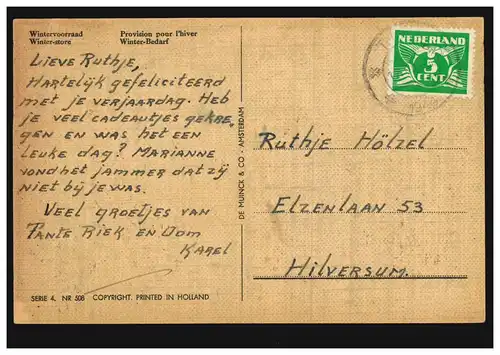 Wintervoorraad Provision pour l'hiver
Winter-store Winter-Bedarf
LIEVE RUTHJE,
HARTELIJK GEFELICITEERD
MET JE VERJAARDAG. HEB
JE VEEL CADEAUTJES GEKRE-
GEN EN WAS HET EEN
LEUKE DAG? MARIANNE
VOND HET JAMMER DAT ZIJ
NIET BIJ JE WAS.
VEEL GROETJES VAN
TANTE RIEK EN OOM
KAREL
SERIE 4. NR 508 COPYRIGHT. PRINTED IN HOLLAND
DE MUINCK & CO - AMSTERDAM
NEDERLAND
5
CENT
RUTHJE HÖLZEL
ELZENLAAN 53
HILVERSUM.